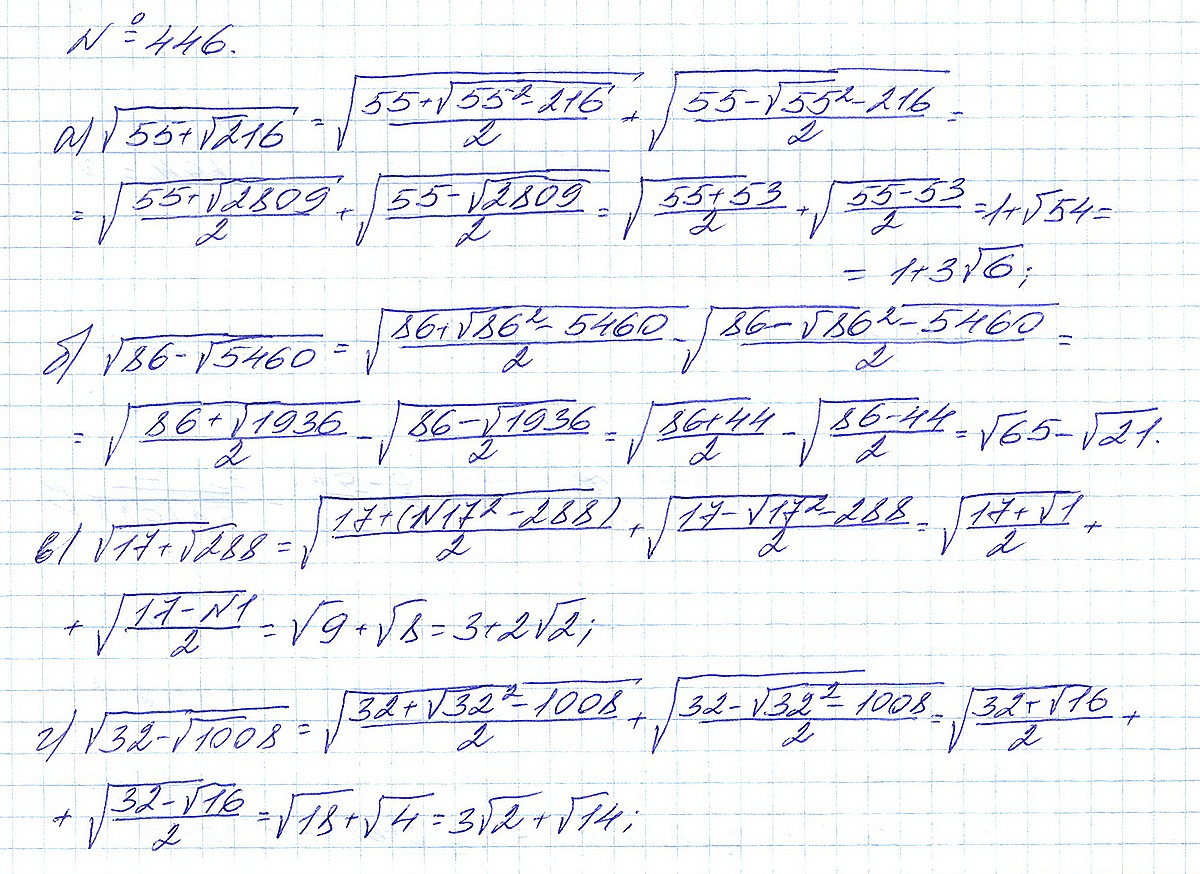 № 446.
а) √(55+√216) = √((55+√(55²-216))/2) + √((55-√(55²-216))/2) =
= √((55+√2809)/2) + √((55-√2809)/2) = √((55+53)/2) + √((55-53)/2) = 1+√54 =
= 1+3√6;
б) √(86-√5460) = √((86+√(86²-5460))/2) - √((86-√(86²-5460))/2) =
= √((86+√1936)/2) - √((86-√1936)/2) = √((86+44)/2) - √((86-44)/2) = √65-√21.
в) √(17+√288) = √((17+(√(17²-288))/2) + √((17-√(17²-288))/2) = √((17+√1)/2) +
+ √((17-√1)/2) = √9+√8 = 3+2√2;
г) √(32-√1008) = √((32+√(32²-1008))/2) + √((32-√(32²-1008))/2) = √((32+√16)/2) +
+ √((32-√16)/2) = √18+√4 = 3√2+√14;